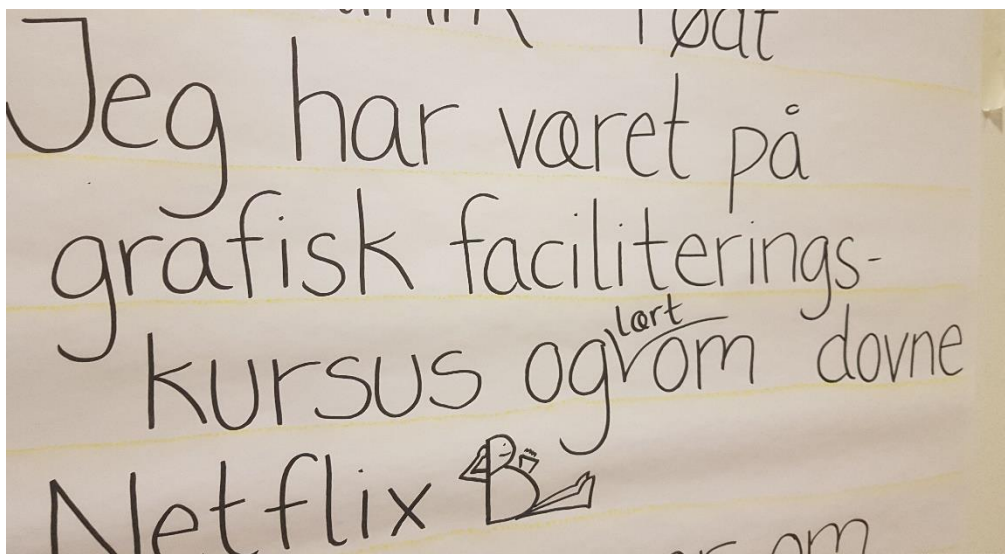 født
Jeg har været på
grafisk faciliterings-
kursus og lært om dovne
Netflix B
om